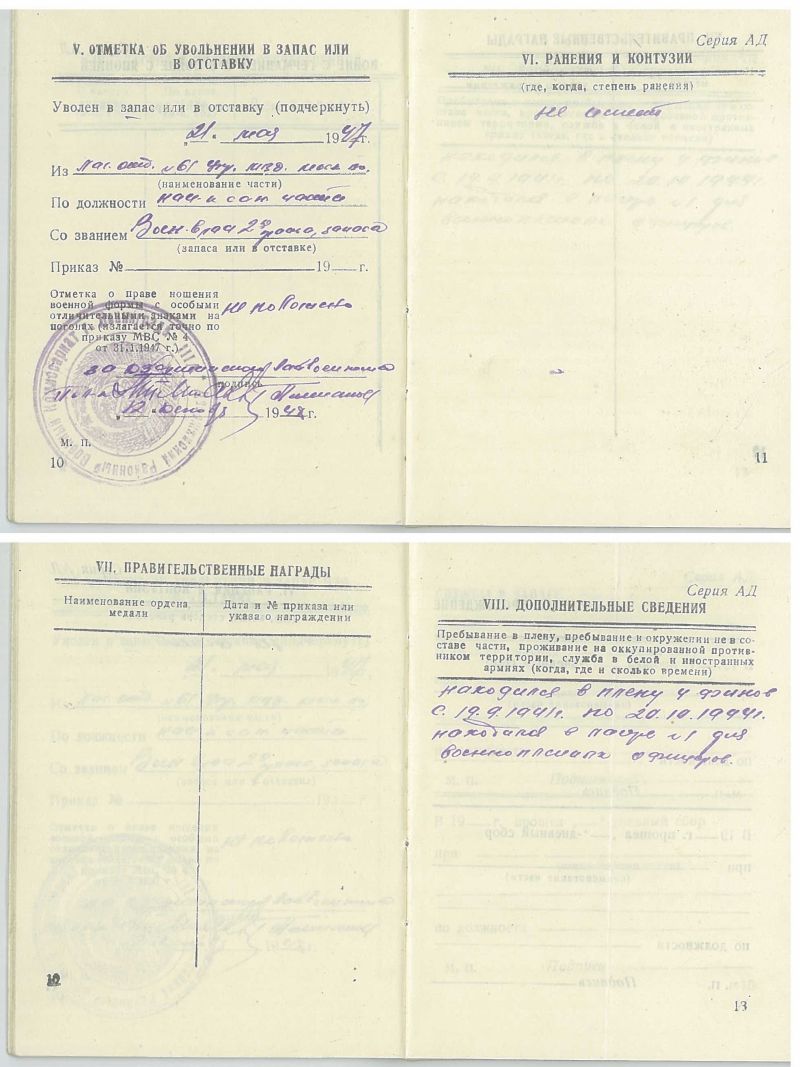 V. ОТМЕТКА ОБ УВОЛЬНЕНИИ В ЗАПАС ИЛИ
В ОТСТАВКУ
Уволен в запас или в отставку (подчеркнуть)
„21. мая 1947г.
Из №61
(наименование части)
По должности
Со званием Воен. врач 2го запаса
(запаса или в отставке)
Приказ № 19 г.
Отметка о праве ношения
военной формы с особыми
отличительными знаками на
погонах (излагается точно по
приказу МВС № 4
от 31.1.1947 г.)
подпись
1947г.
М. П.
10
Серия АД
VI. РАНЕНИЯ И КОНТУЗИИ
(где, когда, степень ранения)
не имеет
11
VII. ПРАВИТЕЛЬСТВЕННЫЕ НАГРАДЫ
Наименование ордена
медали
Дата и № приказа или
указа о награждении
12
Серия АД
VIII. ДОПОЛНИТЕЛЬНЫЕ СВЕДЕНИЯ
Пребывание в плену, пребывание и окружении не в со-
ставе части, проживание на оккупированной против-
ником территории, служба в белой и иностранных
армиях (когда, где и сколько времени)
находился в плену у финов
с 19.9.1941г. по 20.10.1944г.
находился в лагере №1 для
военнопленых офицеров.
13